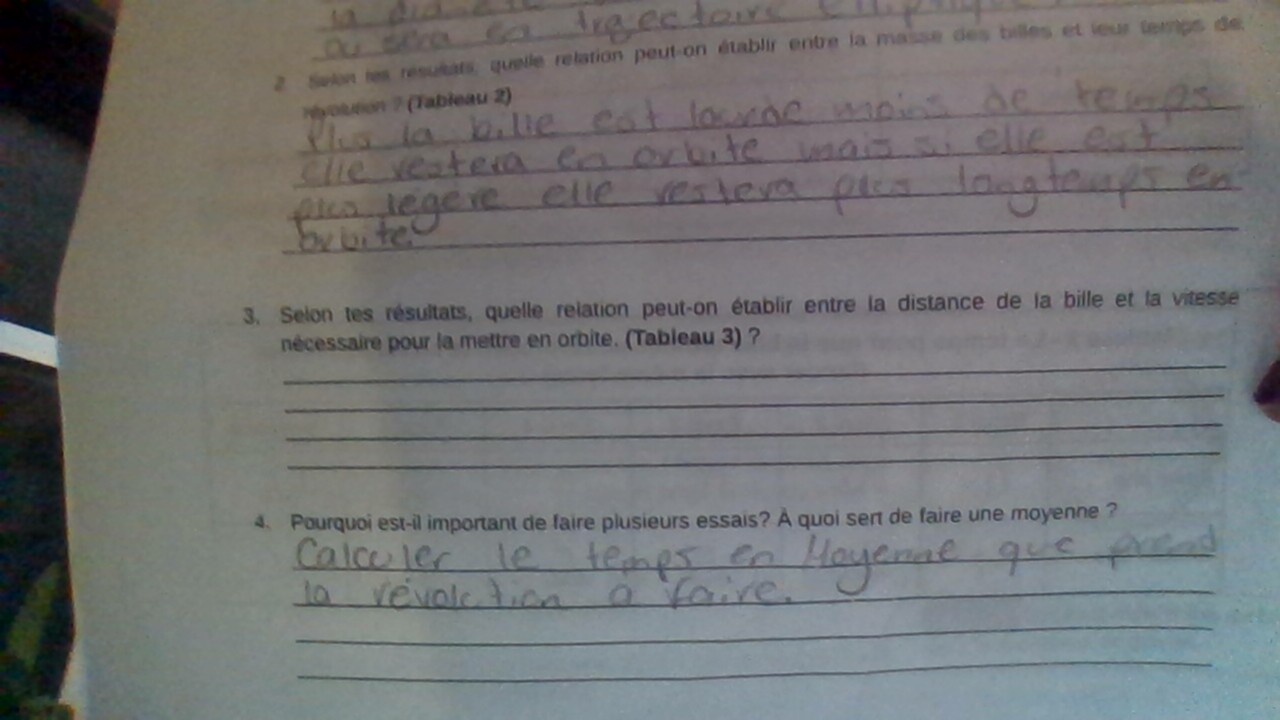 la
ou sera en trajectoire
2. Selon tes résultats, quelle relation peut-on établir entre la masse des billes et leur temps de
révolution ? (Tableau 2)
Plus la bille est lourde moins de temps
elle restera en orbite mais si elle est
plus légère elle restera plus longtemps en
orbite
3. Selon tes résultats, quelle relation peut-on établir entre la distance de la bille et la vitesse
nécessaire pour la mettre en orbite. (Tableau 3) ?
4. Pourquoi est-il important de faire plusieurs essais? À quoi sert de faire une moyenne ?
Calculer le temps en Moyenne que prend
la révolution à faire.